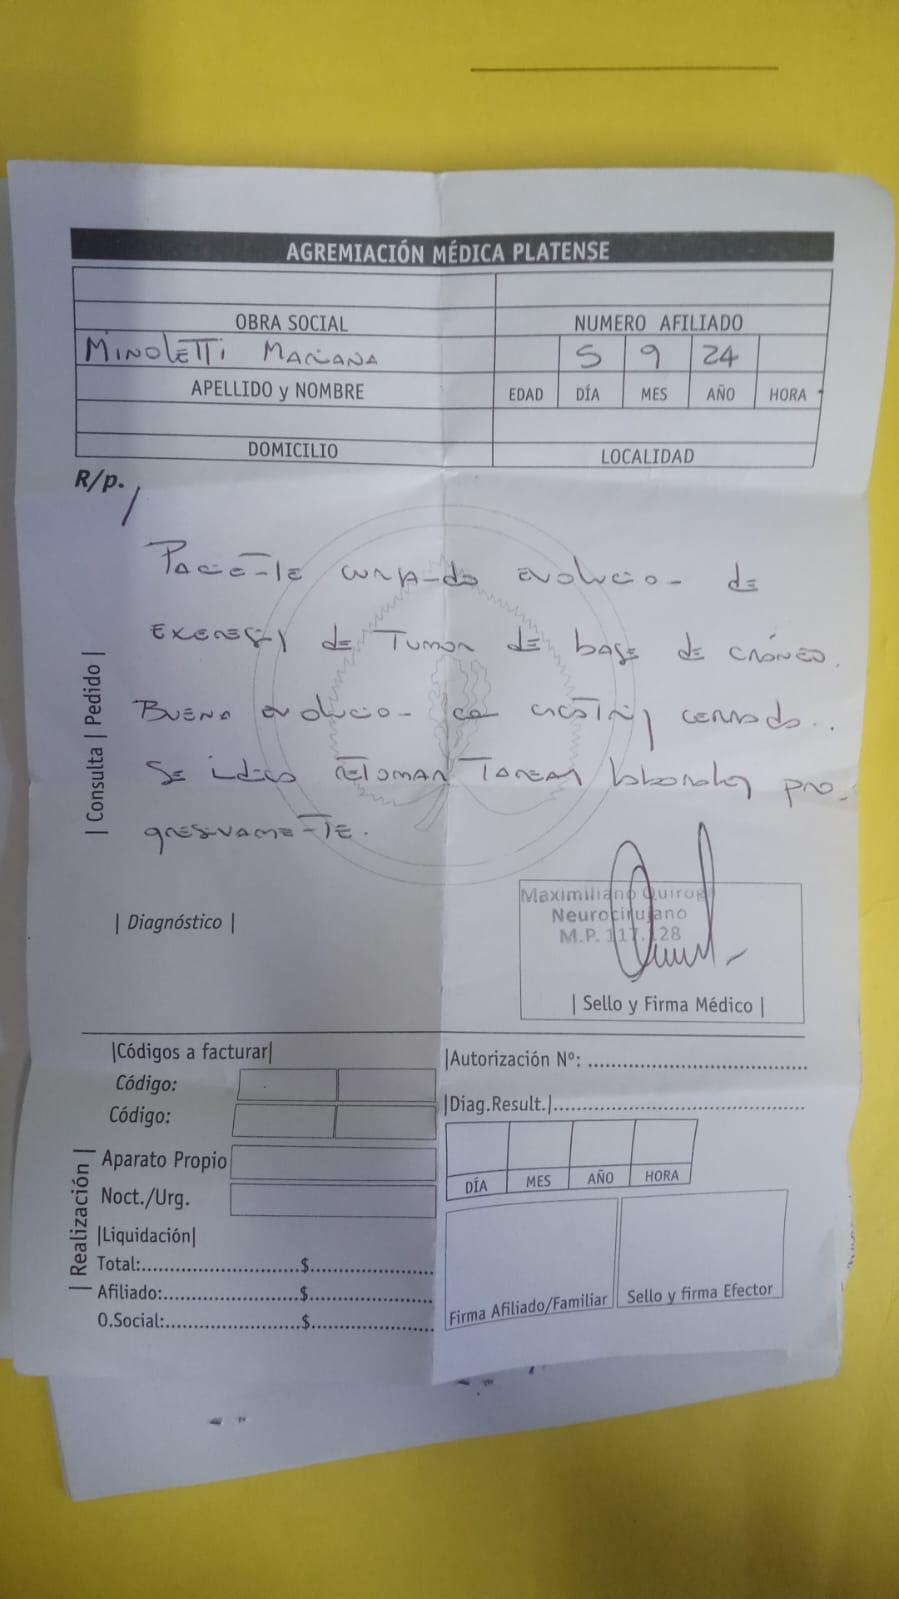 AGREMIACIÓN MÉDICA PLATENSE
OBRA SOCIAL NUMERO AFILIADO
MINOLETTI MARIANA 5 9 24
APELLIDO y NOMBRE EDAD DÍA MES AÑO HORA
DOMICILIO LOCALIDAD
R/p. /
Paciente cursando evolucion de
exeresis de Tumor de base de cráneo.
Buena evolucion con cicatriz cerrada..
Se indica retomar Tareas laborales pro-
gresivamente.
| Consulta | Pedido |
| Diagnóstico |
Maximiliano Quiroga
Neurocirujano
M.P. 117.128
| Sello y Firma Médico |
|Códigos a facturar| |Autorización Nº:
Código:
Código: |Diag.Result.|
| Realización |
Aparato Propio
Noct./Urg. DÍA MES AÑO HORA
|Liquidación|
Total: $
Afiliado: $ Firma Afiliado/Familiar Sello y firma Efector
O.Social: $